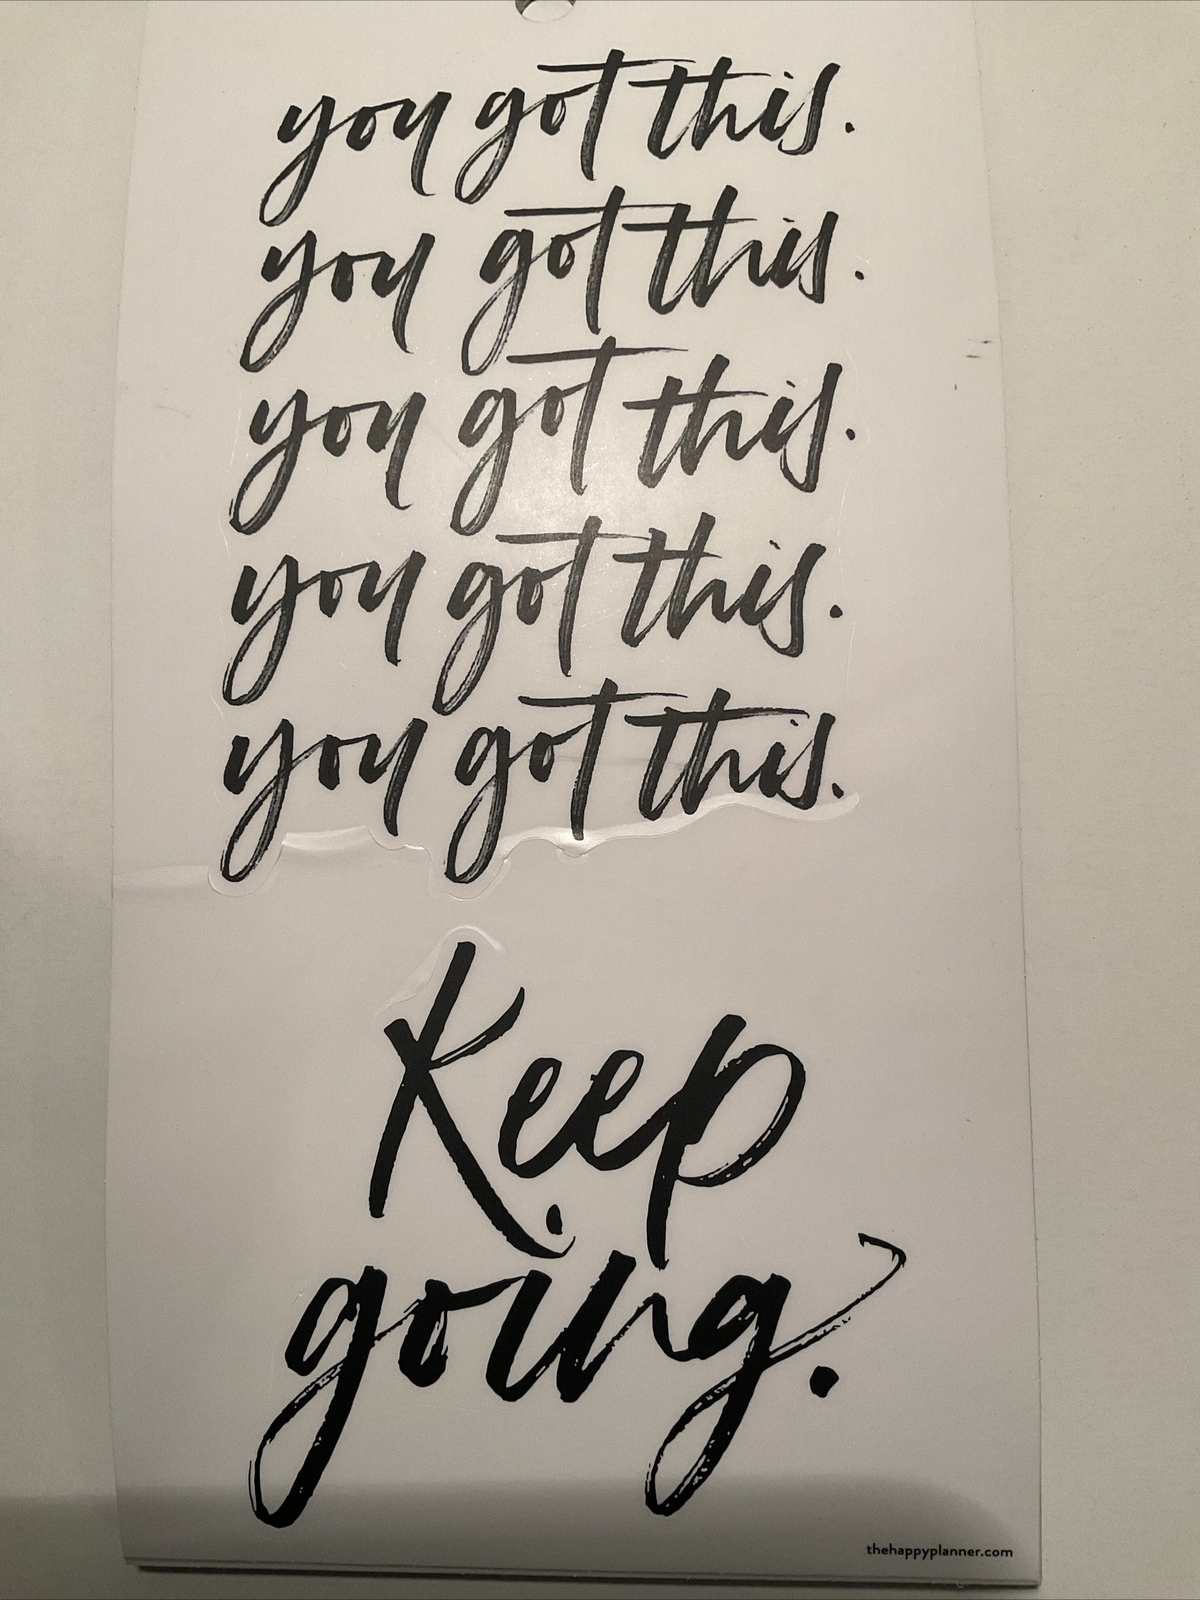 you got this.
you got this.
you got this.
you got this.
you got this.
Keep
going.
thehappyplanner.com